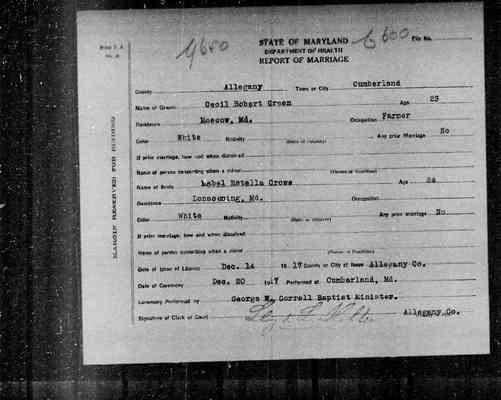 STATE OF MARYLAND
DEPARTMENT OF HEALTH
REPORT OF MARRIAGE
File No.
County Allegany Town or City Cumberland
Name of Groom Cecil Robert Green Age 23
Residence Moscow, Md. Occupation Farmer
Color White Nativity (State or Country) Any prior Marriage No
If prior marriage, how and when dissolved
Name of person consenting when a minor (Parent or Guardian)
Name of Bride Estella Crowe Age 24
Residence Lonaconing, Md. Occupation
Color White Nativity (State or Country) Any prior marriage No
If prior marriage, how and when dissolved
Name of person consenting when a minor (Parent or Guardian)
Date of Issue of License Dec. 14 1917 County or City of Issue Allegany Co.
Date of Ceremony Dec. 20 1917 Performed at Cumberland, Md.
Ceremony Performed by George W. Gorrell Baptist Minister.
Signature of Clerk of Court Allegany Co.
MARGIN RESERVED FOR BINDING